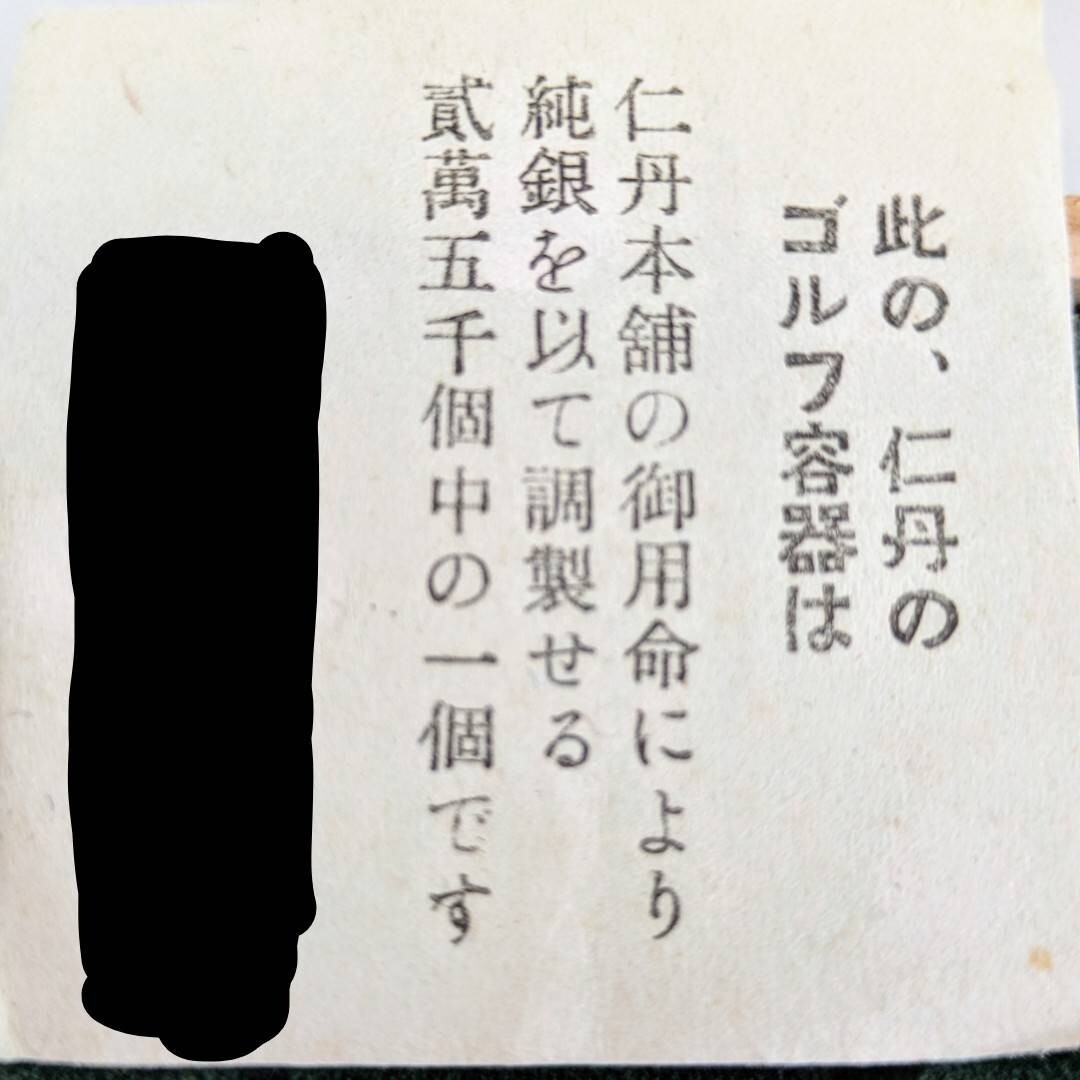 此の、仁丹の
ゴルフ容器は
仁丹本舗の御用命により
純銀を以て調製せる
貳萬五千個中の一個です